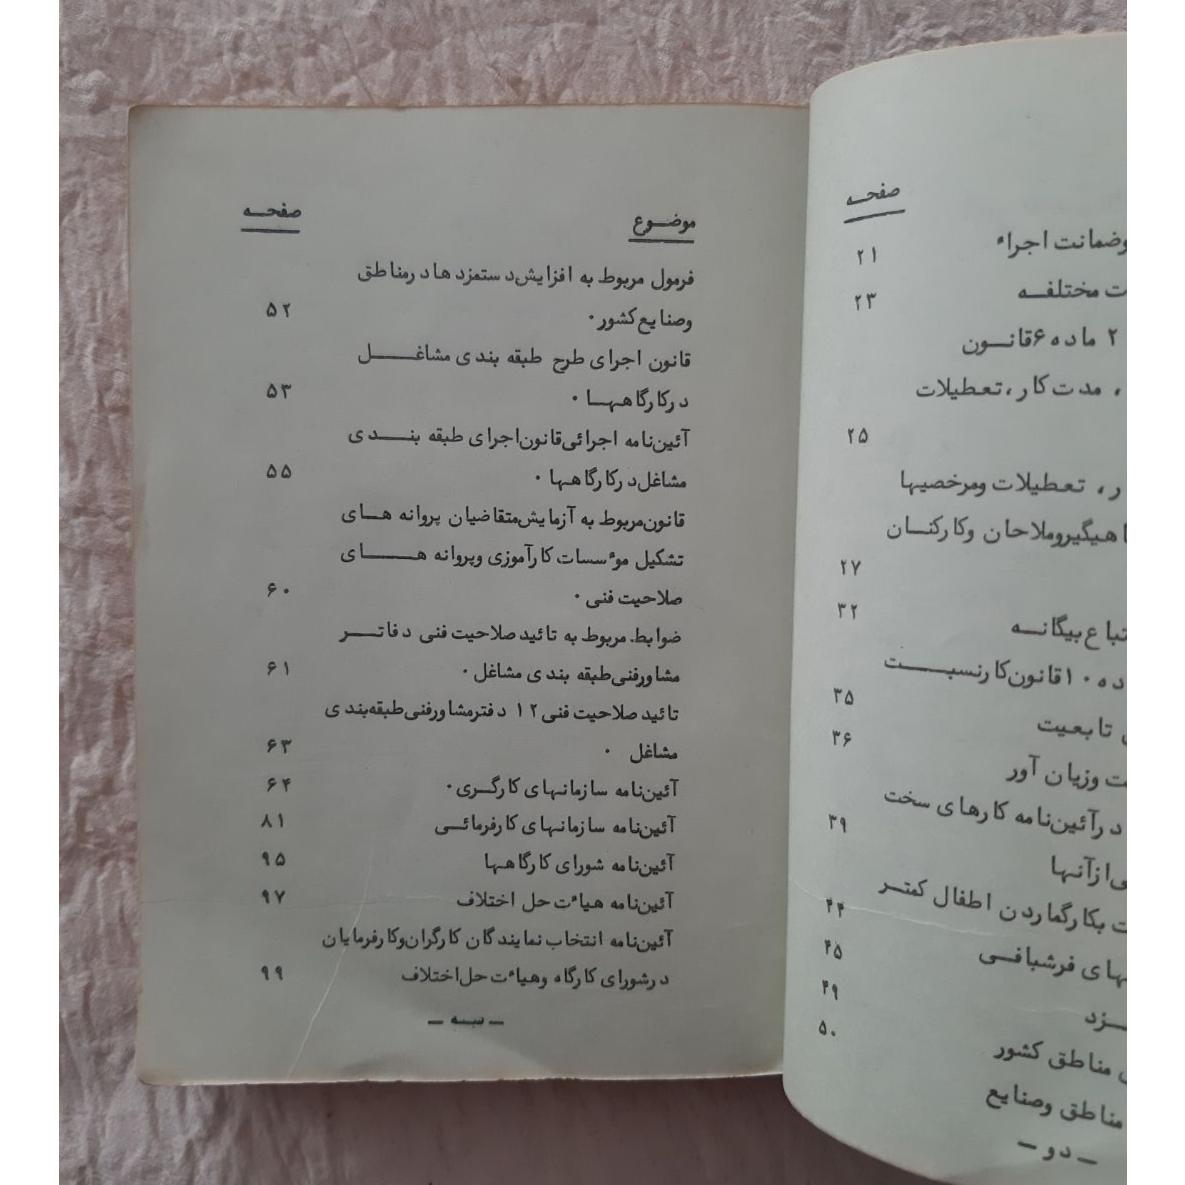 صفحه
وضمانت اجراء
۲۱
ت مختلفه
۲۳
۲ ماده ۶قانون
، مدت کار ،تعطیلات
۲۵
ر، تعطیلات ومرخصیها
هیگیروملاحان وکارکنان
۲۷
تباع بیگانه
۳۲
ده ۱۰قانون کارنسبت
۳۵
تابعیت
۳۶
ت وزیان آور
درآئین‌نامه کارهای سخت
۳۹
ی‌ازآنها
ت بکارگماردن اطفال کمتر
۴۴
های فرشبافی
۴۵
زد
۴۹
مناطق کشور
۵۰
مناطق وصنایع
ـ دو ـ
موضوع
صفحه
فرمول مربوط به افزایش‌دستمزدها درمناطق
وصنایع کشور.
۵۲
قانون اجرای طرح طبقه بندی مشاغل
درکارگاهها .
۵۳
آئین‌نامه اجرائی‌قانون‌اجرای طبقه بندی
مشاغل‌درکارگاهها .
۵۵
قانون‌مربوط به آزمایش‌متقاضیان پروانه های
تشکیل موٴسسات کارآموزی وپروانه های
صلاحیت فنی .
۶۰
ضوابط مربوط به تائید صلاحیت فنی دفاتر
مشاورفنی‌طبقه بندی مشاغل .
۶۱
تائید صلاحیت فنی ۱۲ دفترمشاورفنی‌طبقه‌بندی
مشاغل .
۶۳
آئین‌نامه سازمانهای کارگری.
۶۴
آئین‌نامه سازمانهای کارفرمائی
۸۱
آئین‌نامه شورای کارگاهها
۹۵
آئین‌نامه هیاٴت حل اختلاف
۹۷
آئین‌نامه انتخاب نمایندگان کارگران‌وکارفرمایان
درشورای کارگاه وهیاٴت حل‌اختلاف
۹۹
ـ سه ـ